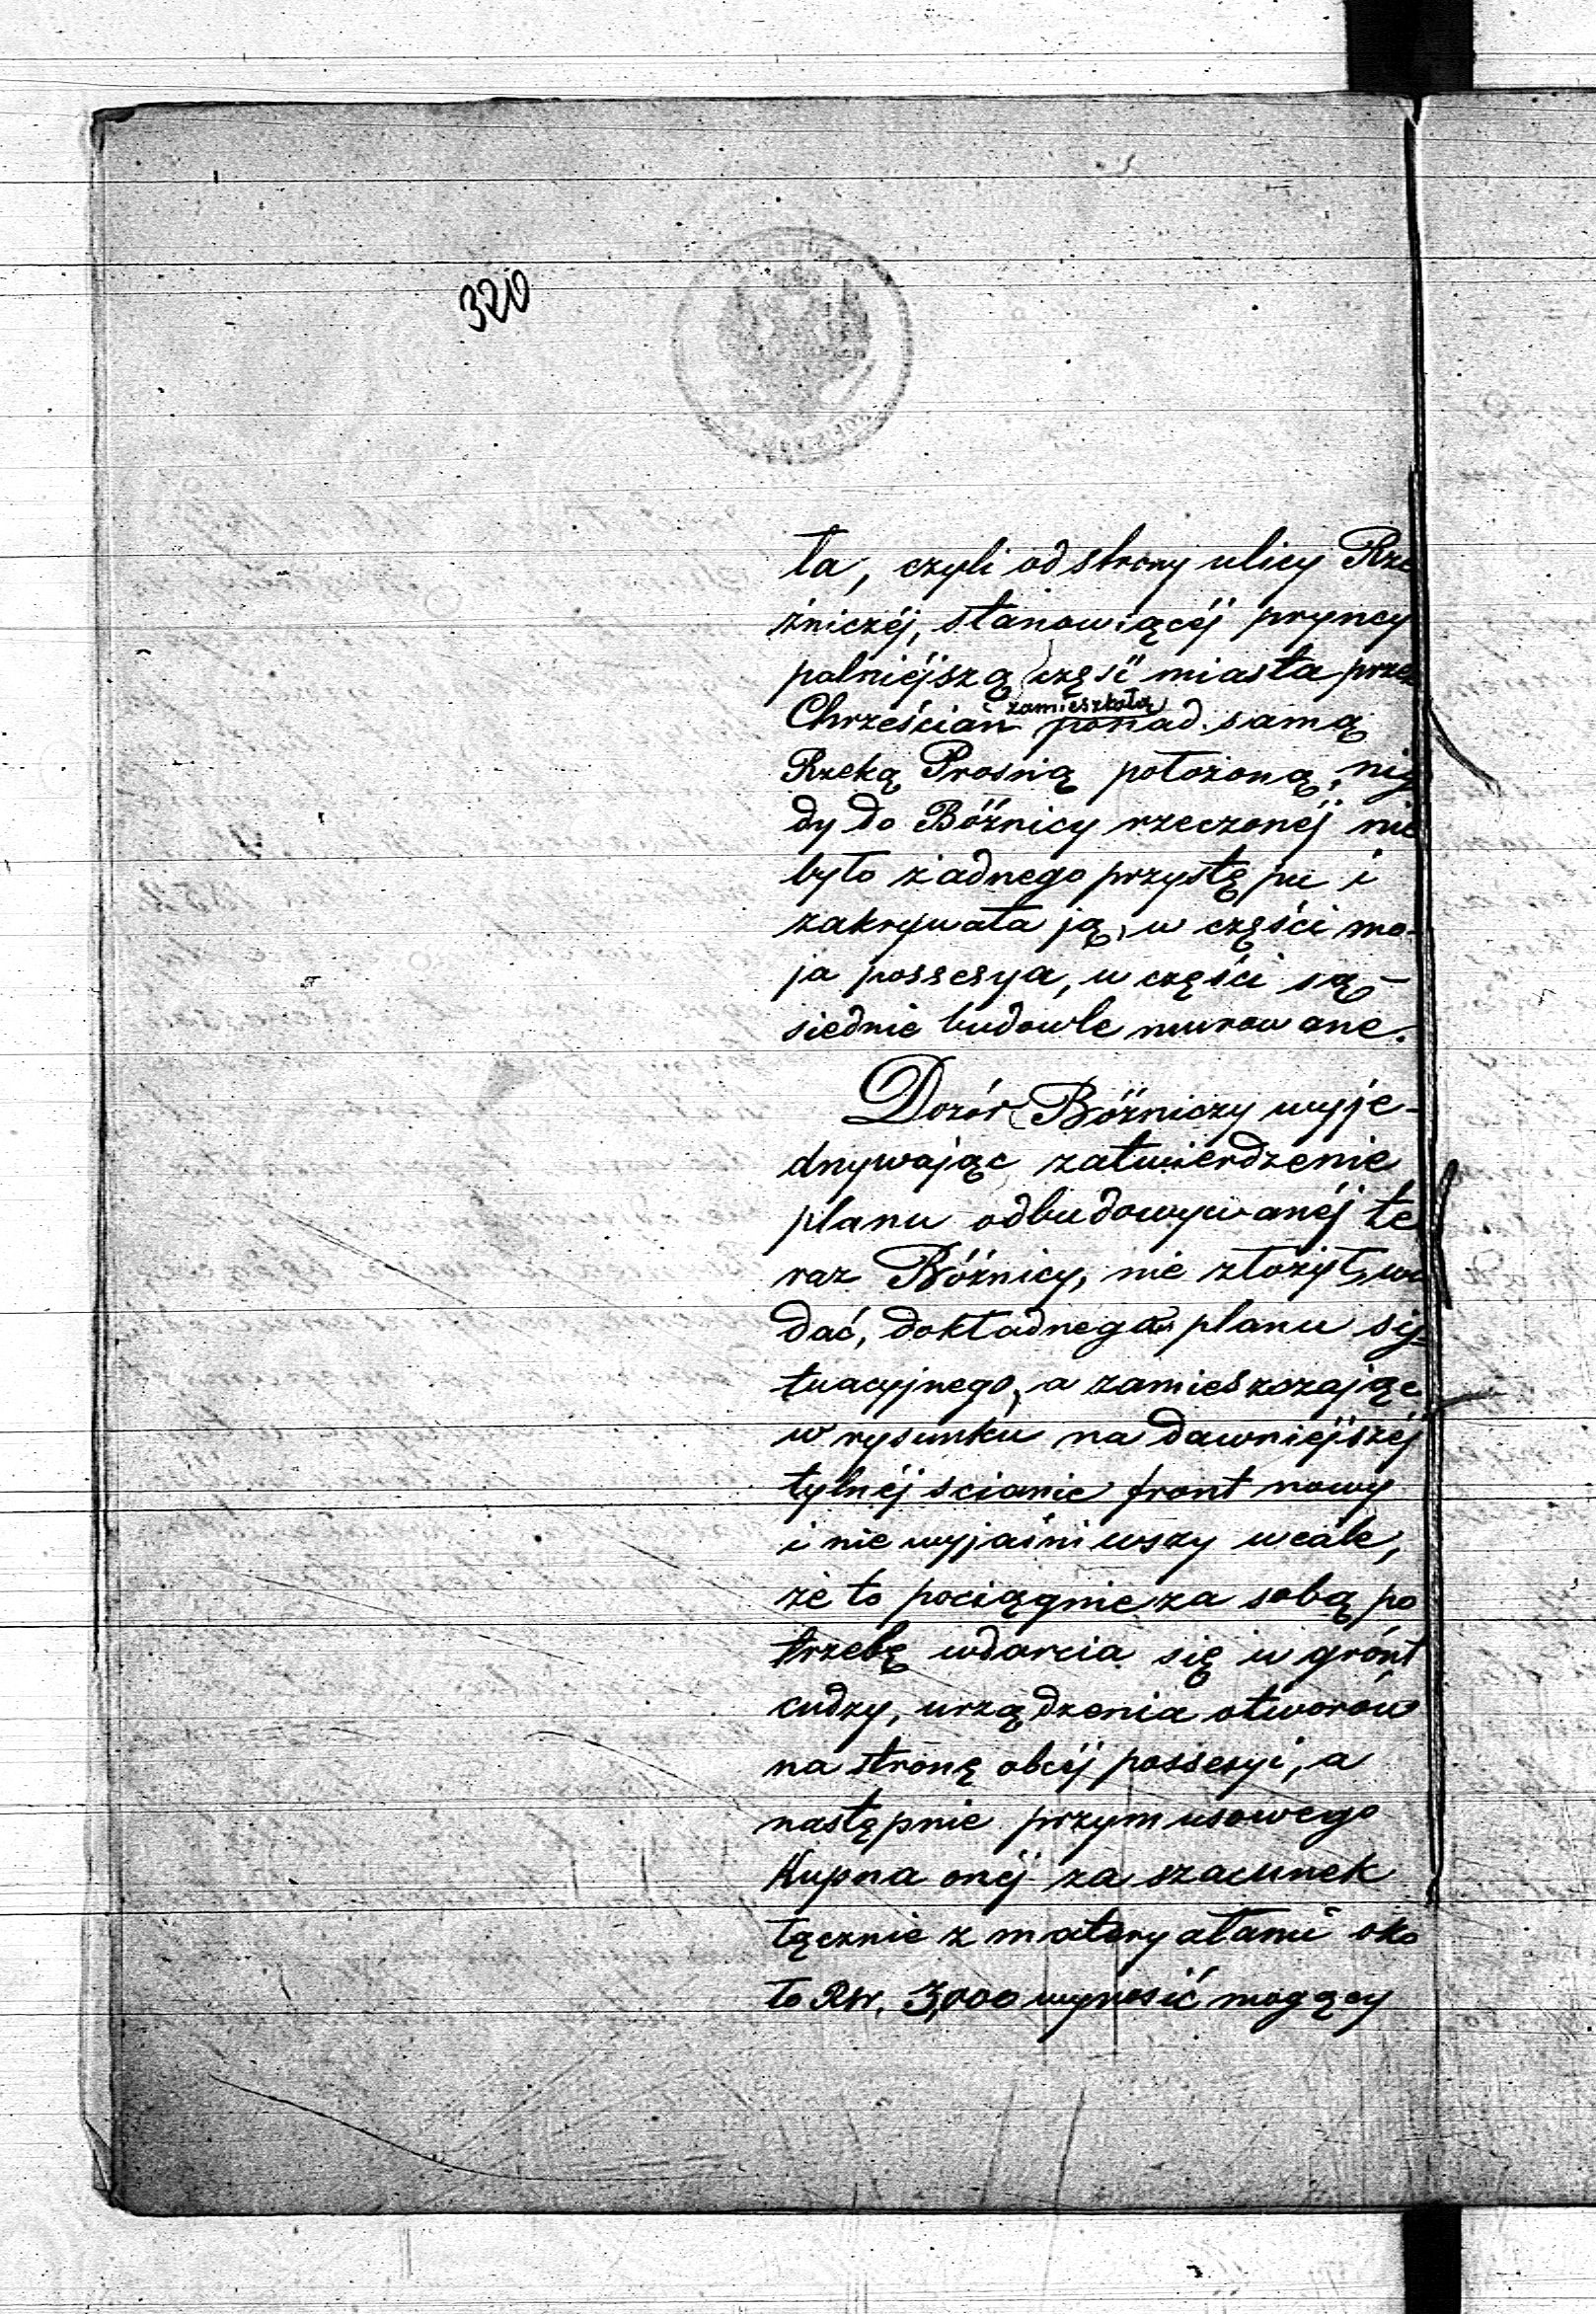 320
ta, czyli od strony ulicy Rze
źniczéj, stanowiącéj pryncy
palniéjszą część miasta przez
Chrześcian zamieszkałą ponad samą
Rzeką Prosną położoną, nig
dy do Bóźnicy rzeczonéj nie
było żadnego przystępu i
zakrywała ją, w części mo-
ja possesya, w części są-
siednie budowle murowane.
Dozór Bóźniczy wyje-
dnywając zatwierdzenie
planu odbudowywanéj te
raz Bóźnicy, nie złożył, wi
dać, dokładnego planu sy-
tuacyjnego, a zamieszczając
w rysunku na dawniéjszéj
tylnéj scianie front nowy
i nie wyjaśniwszy wcale,
że to pociągnie za sobą po
trzebę wdarcia się w grónt
cudzy, urządzenia otworów
na stronę obcéj possesyi, a
następnie przymusowego
Kupna onéj za szacunek
łącznie z materyałami oko
ło Rsr. 3,000 wynosić mogący